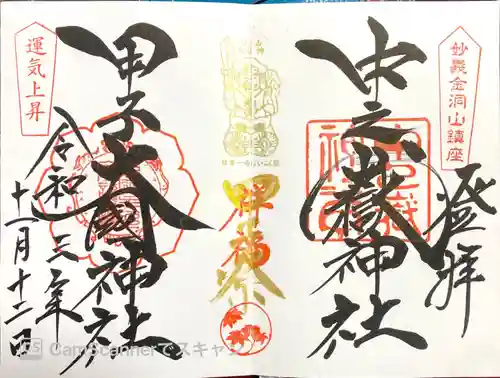 妙義金洞山鎮座
登拝
中之嶽神社
祥福
甲子大國神社
運気上昇
令和三年
十一月十二日
CS CamScannerでスキャン